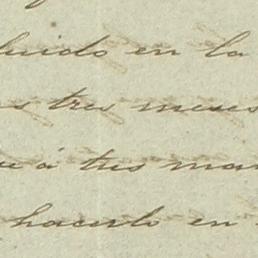 luido en la
s tres meses
e á tres ma
hacerlo en